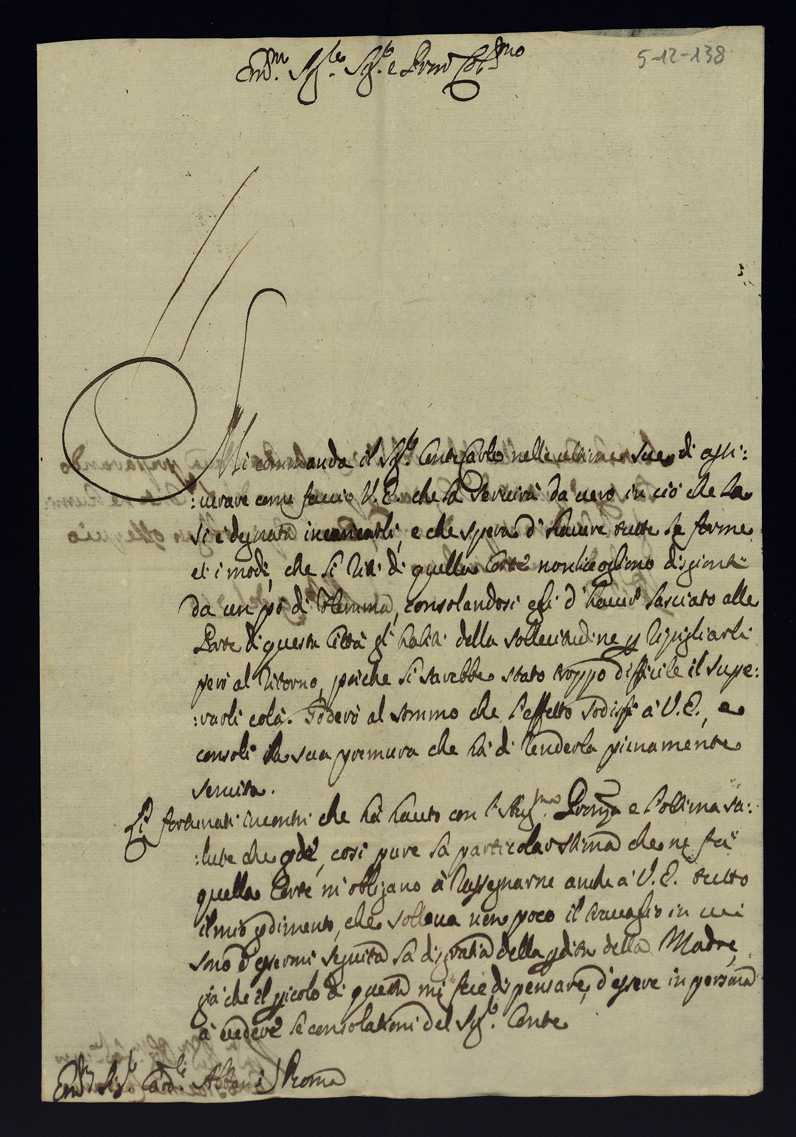 5-12-138
Em.mo Sig.re Sig.re e Pron Col.mo
Mi commanda il Sig.r Conte Carlo nelle ultime sue di assi:
:curare come faccio V.E. che la servirà da vero in ciò che la
si è degnata incaricarli, e che spera d'havere tutte le forme
et i modi, che li Riti di quella Corte non licogliono disgionti
da un pò di flemma, consolandosi egli d'haver lasciato alle
Porte di questa Città gli habiti della sollecitudine p ripigliarli
però al ritorno, poiche li sarebbe stato troppo difficile il supe:
:rarli colà. Goderò al sommo che l'effetto sodisfi à V.E., e
consoli la sua premura che hà di renderla pienamente
servita.
Li fortunati incontri che hà hauto con l' e l'ottima sa:
:lute che gode, così pure la particolar stima che ne fà
quella Corte m'obligano à rassegnarne anche à V.E. tutto
il mio godimento, che solleva non poco il travaglio in cui
sono d'essermi seguita la disgratia della della Madre,
già che il di questa mi fece dispensare, d'essere in persona
à vedere le consolationi del Sig.r Conte
Em.mo Sig.r Card.le Albani / Roma